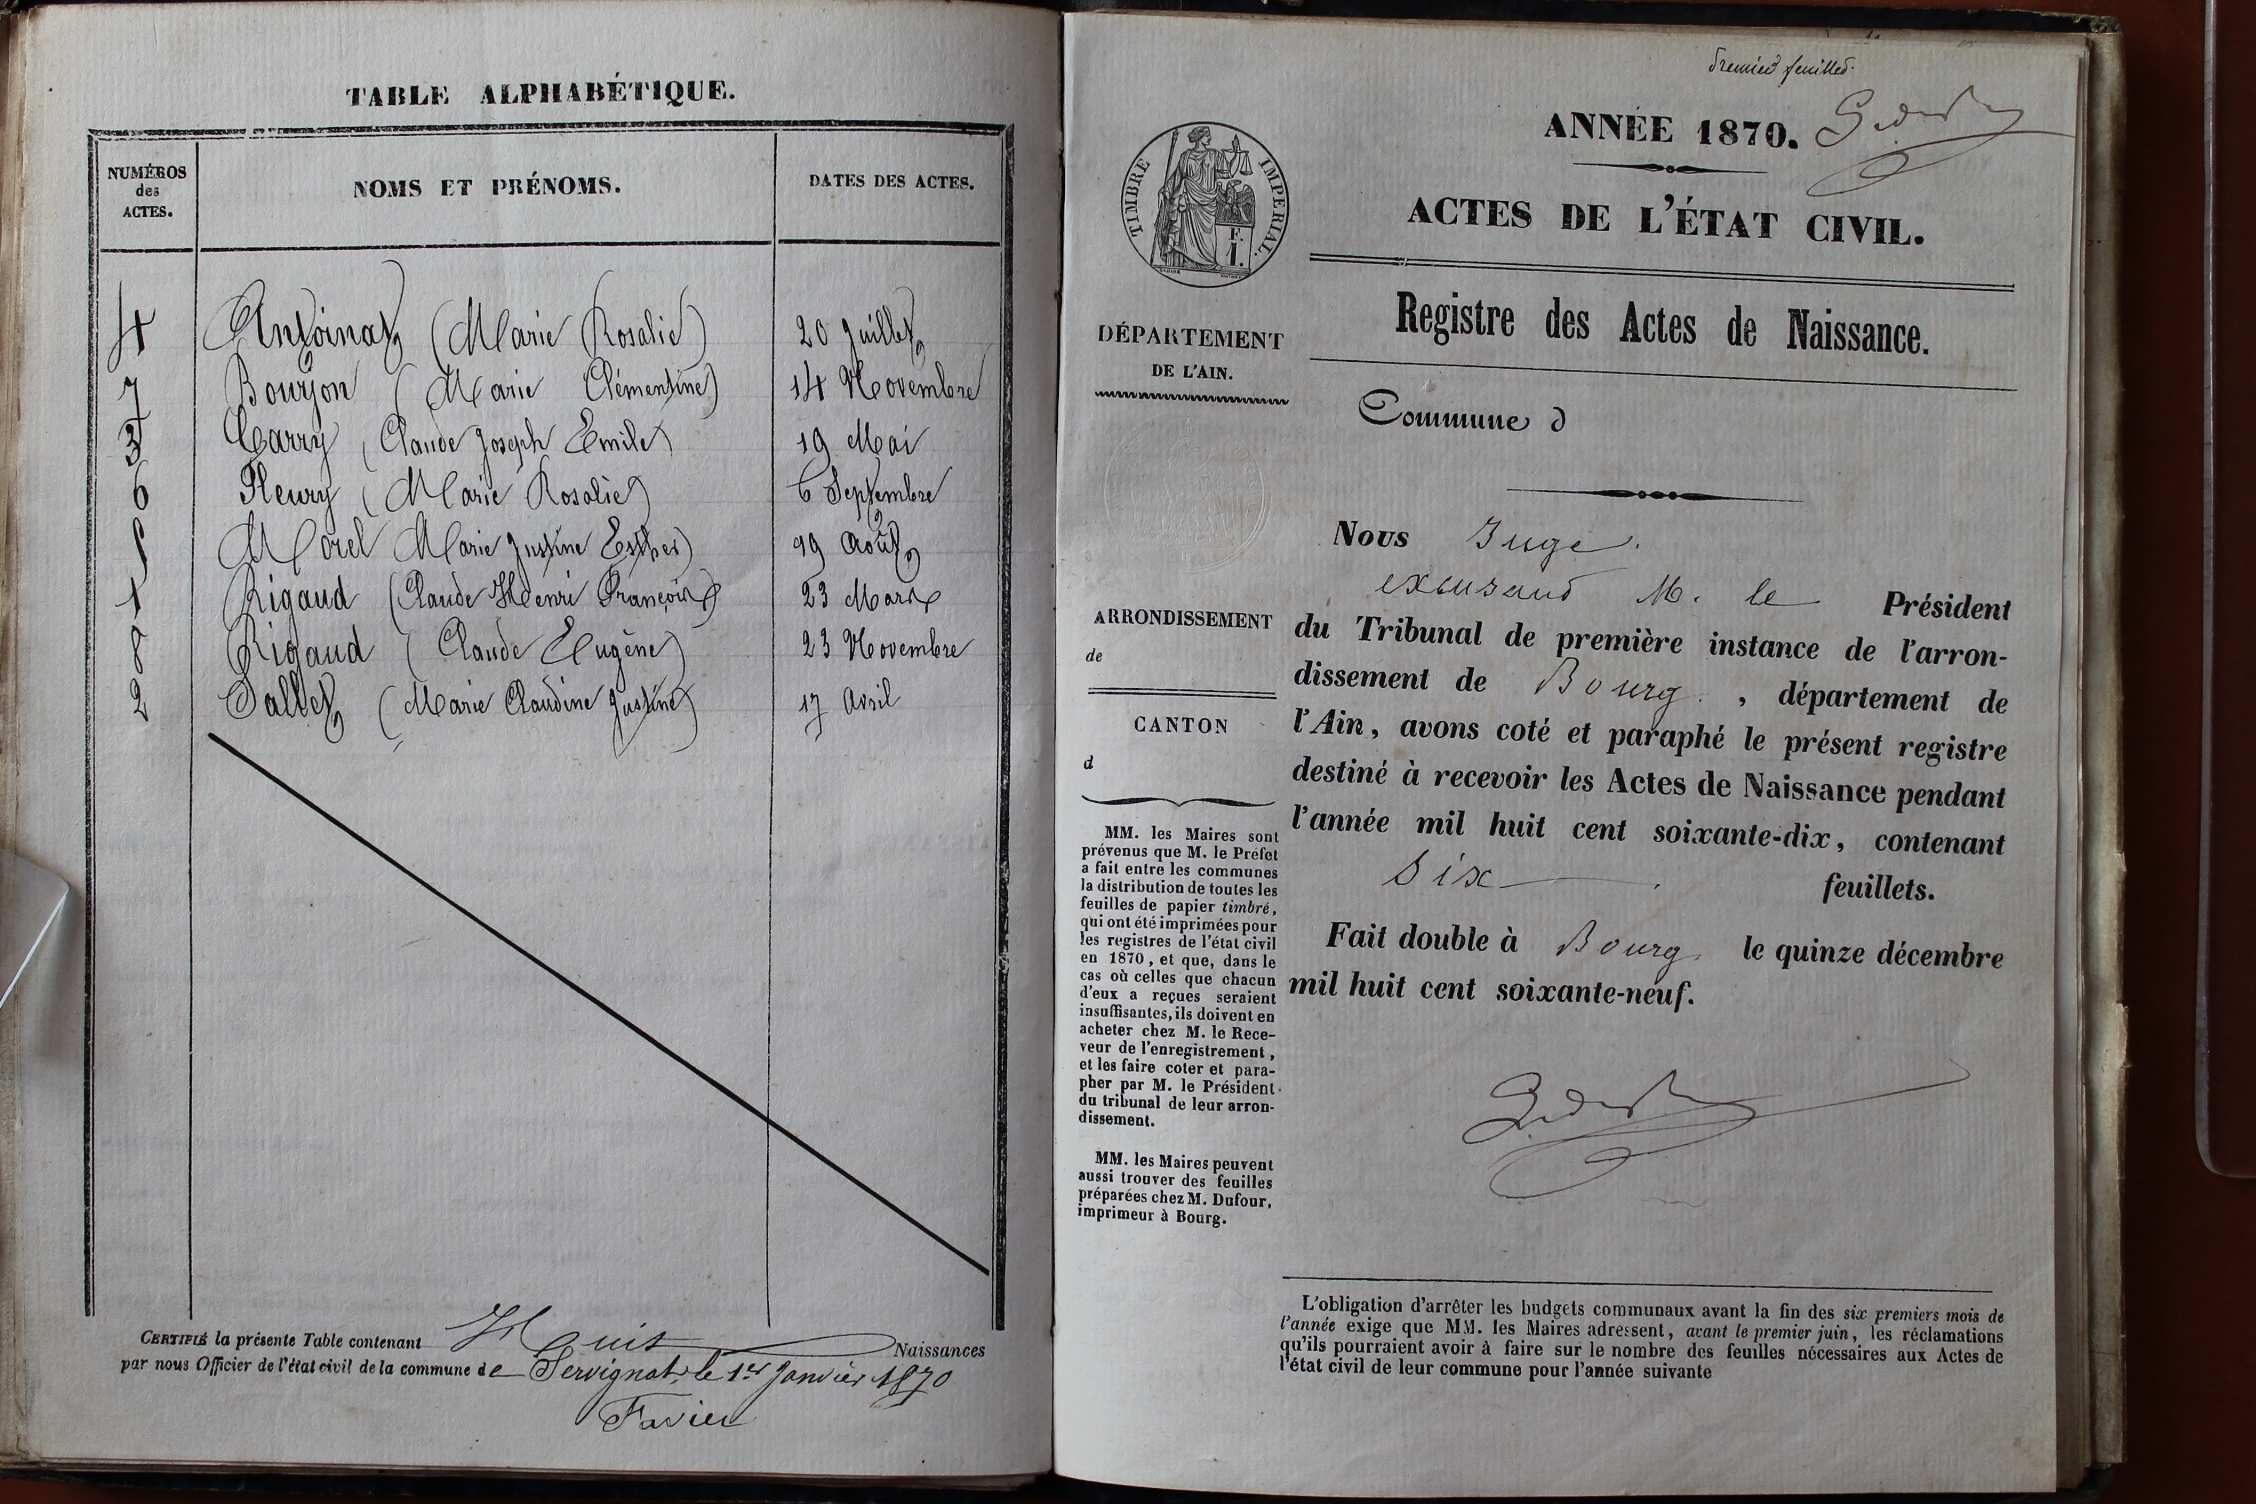 TABLE ALPHABÉTIQUE.
NUMÉROS
des
ACTES.
NOMS ET PRÉNOMS.
DATES DES ACTES.
4 Antoinat (Marie Rosalie) 20 Juillet
7 Bouyon (Marie Clémentine) 14 Novembre
3 Carry (Claude Joseph Emile) 19 Mai
6 Fleury (Marie Rosalie) 6 Septembre
5 Morel Marie Justine Esther) 19 Août
1 Rigaud (Claude Henri François) 23 Mars
8 Rigaud (Claude Eugène) 23 Novembre
2 Sallet (Marie Claudine Justine) 17 Avril
CERTIFIÉ la présente Table contenant Huit Naissances
par nous Officier de l'état civil de la commune de Servignat, le 1er Janvier 1870
Favier
Premier feuillet.
ANNÉE 1870.
TIMBRE IMPERIAL.
F.
1.
ACTES DE L'ÉTAT CIVIL.
Registre des Actes de Naissance.
DÉPARTEMENT
DE L'AIN.
Commune d
ARRONDISSEMENT
de
CANTON
d
MM. les Maires sont
prévenus que M. le Préfet
a fait entre les communes
la distribution de toutes les
feuilles de papier timbré,
qui ont été imprimées pour
les registres de l'état civil
en 1870, et que, dans le
cas où celles que chacun
d'eux a reçues seraient
insuffisantes, ils doivent en
acheter chez M. le Rece-
veur de l'enregistrement,
et les faire coter et para-
pher par M. le Président
du tribunal de leur arron-
dissement.
MM. les Maires peuvent
aussi trouver des feuilles
préparées chez M. Dufour,
imprimeur à Bourg.
Nous Juge.
excusant M. le Président
du Tribunal de première instance de l'arron-
dissement de Bourg, département de
l'Ain, avons coté et paraphé le présent registre
destiné à recevoir les Actes de Naissance pendant
l'année mil huit cent soixante-dix, contenant
six feuillets.
Fait double à Bourg le quinze décembre
mil huit cent soixante-neuf.
L'obligation d'arrêter les budgets communaux avant la fin des six premiers mois de
l'année exige que MM. les Maires adressent, avant le premier juin, les réclamations
qu'ils pourraient avoir à faire sur le nombre des feuilles nécessaires aux Actes de
l'état civil de leur commune pour l'année suivante